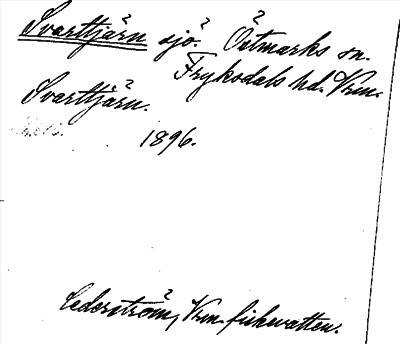 Svarttjärn sjö. Östmarks sn.
Fryksdals hd. Vrm.
Svarttjärn.
1896.
Cederström, Vrm. fiskevatten.